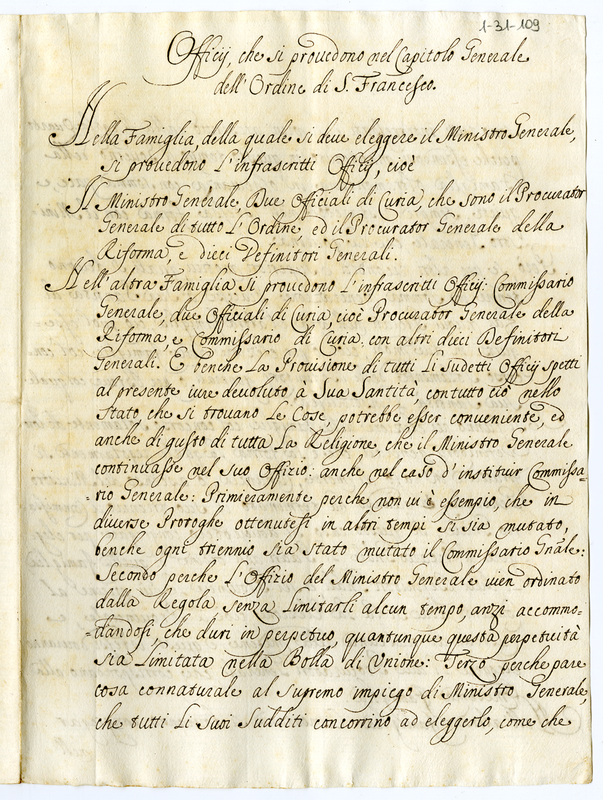 1-31-109
Officij, che si prouedono nel Capitolo Generale
dell'Ordine di S. Francesco.
Nella Famiglia, della quale si deue eleggere il Ministro Generale,
si prouedono L'infrascritti Officij, cioè
Il Ministro Generale, Due Officiali di Curia, che sono il Procurator
Generale di tutto L'Ordine, ed il Procurator Generale della
Riforma, e dieci Definitori Generali.
Nell'altra Famiglia si prouedono L'infrascritti Officij: Commissario
Generale, due Officiali di Curia, cioè Procurator Generale della
Riforma, e Commissario di Curia. con altri dieci Definitori
Generali. E benche La Prouisione di tutti Li sudetti Officij spetti
al presente iure deuoluto à Sua Santità, contutto ciò nello
stato, che si trouano Le Cose, potrebbe esser conueniente, ed
anche di gusto di tutta La Religione, che il Ministro Generale
continuasse nel suo Offizio: anche nel caso d'instituir Commissa-
-rio Generale: Primieramente perche non ui è essempio, che in
diuerse Proroghe ottenutesi in altri tempi si sia mutato,
benche ogni triennio sia stato mutato il Commissario Gnãle:
Secondo perche L'Offizio del Ministro Generale uien ordinato
dalla Regola senza Limitarli alcun tempo, anzi accommo-
-dandosi, che duri in perpetuo, quantunque questa perpetuità
sia Limitata nella Bolla di Vnione: Terzo perche pare
cosa connaturale al supremo impiego di Ministro Generale,
che tutti Li suoi sudditi concorrino ad eleggerlo, come che